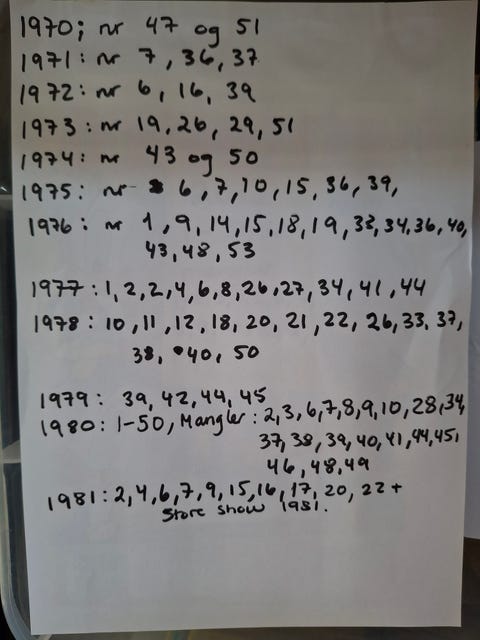 1970; nr 47 og 51
1971: nr 7, 36, 37
1972: nr 6, 16, 39
1973: nr 19, 26, 29, 51
1974: nr 43 og 50
1975: nr 6, 7, 10, 15, 36, 39,
1976: nr 1, 9, 14, 15, 18, 19, 33, 34, 36, 40,
43, 48, 53
1977: 1, 2, 2, 4, 6, 8, 26, 27, 34, 41, 44
1978: 10, 11, 12, 18, 20, 21, 22, 26, 33, 37,
38, 40, 50
1979: 39, 42, 44, 45
1980: 1-50, Mangler: 2, 3, 6, 7, 8, 9, 10, 28, 34,
37, 38, 39, 40, 41, 44, 45,
46, 48, 49
1981: 2, 4, 6, 7, 9, 15, 16, 17, 20, 22 +
Store show 1981.